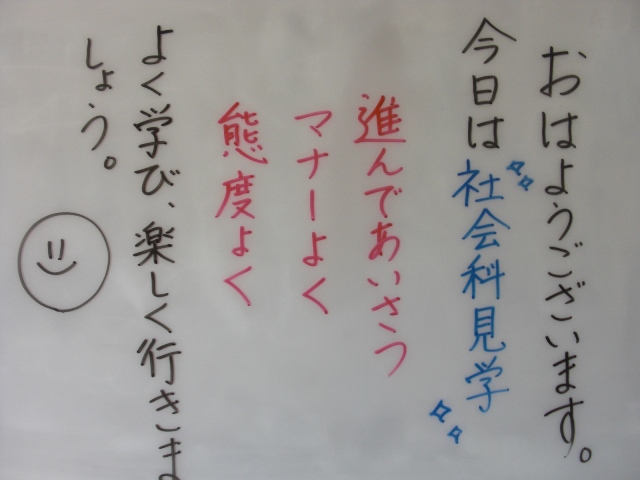 おはようございます。
今日は社会科見学
進んであいさつ
マナーよく
態度よく
よく学び、楽しく行きま
しょう。